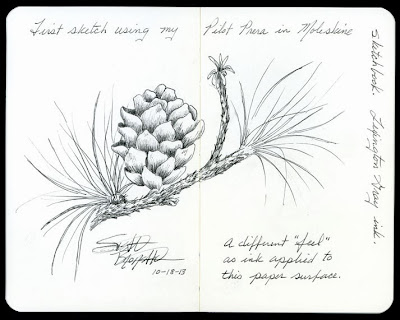 First sketch using my Pilot Prera in Moleskine
Sketchbook. Lexington Gray ink.
A different "feel"
as ink applied to
this paper surface.
10-18-13